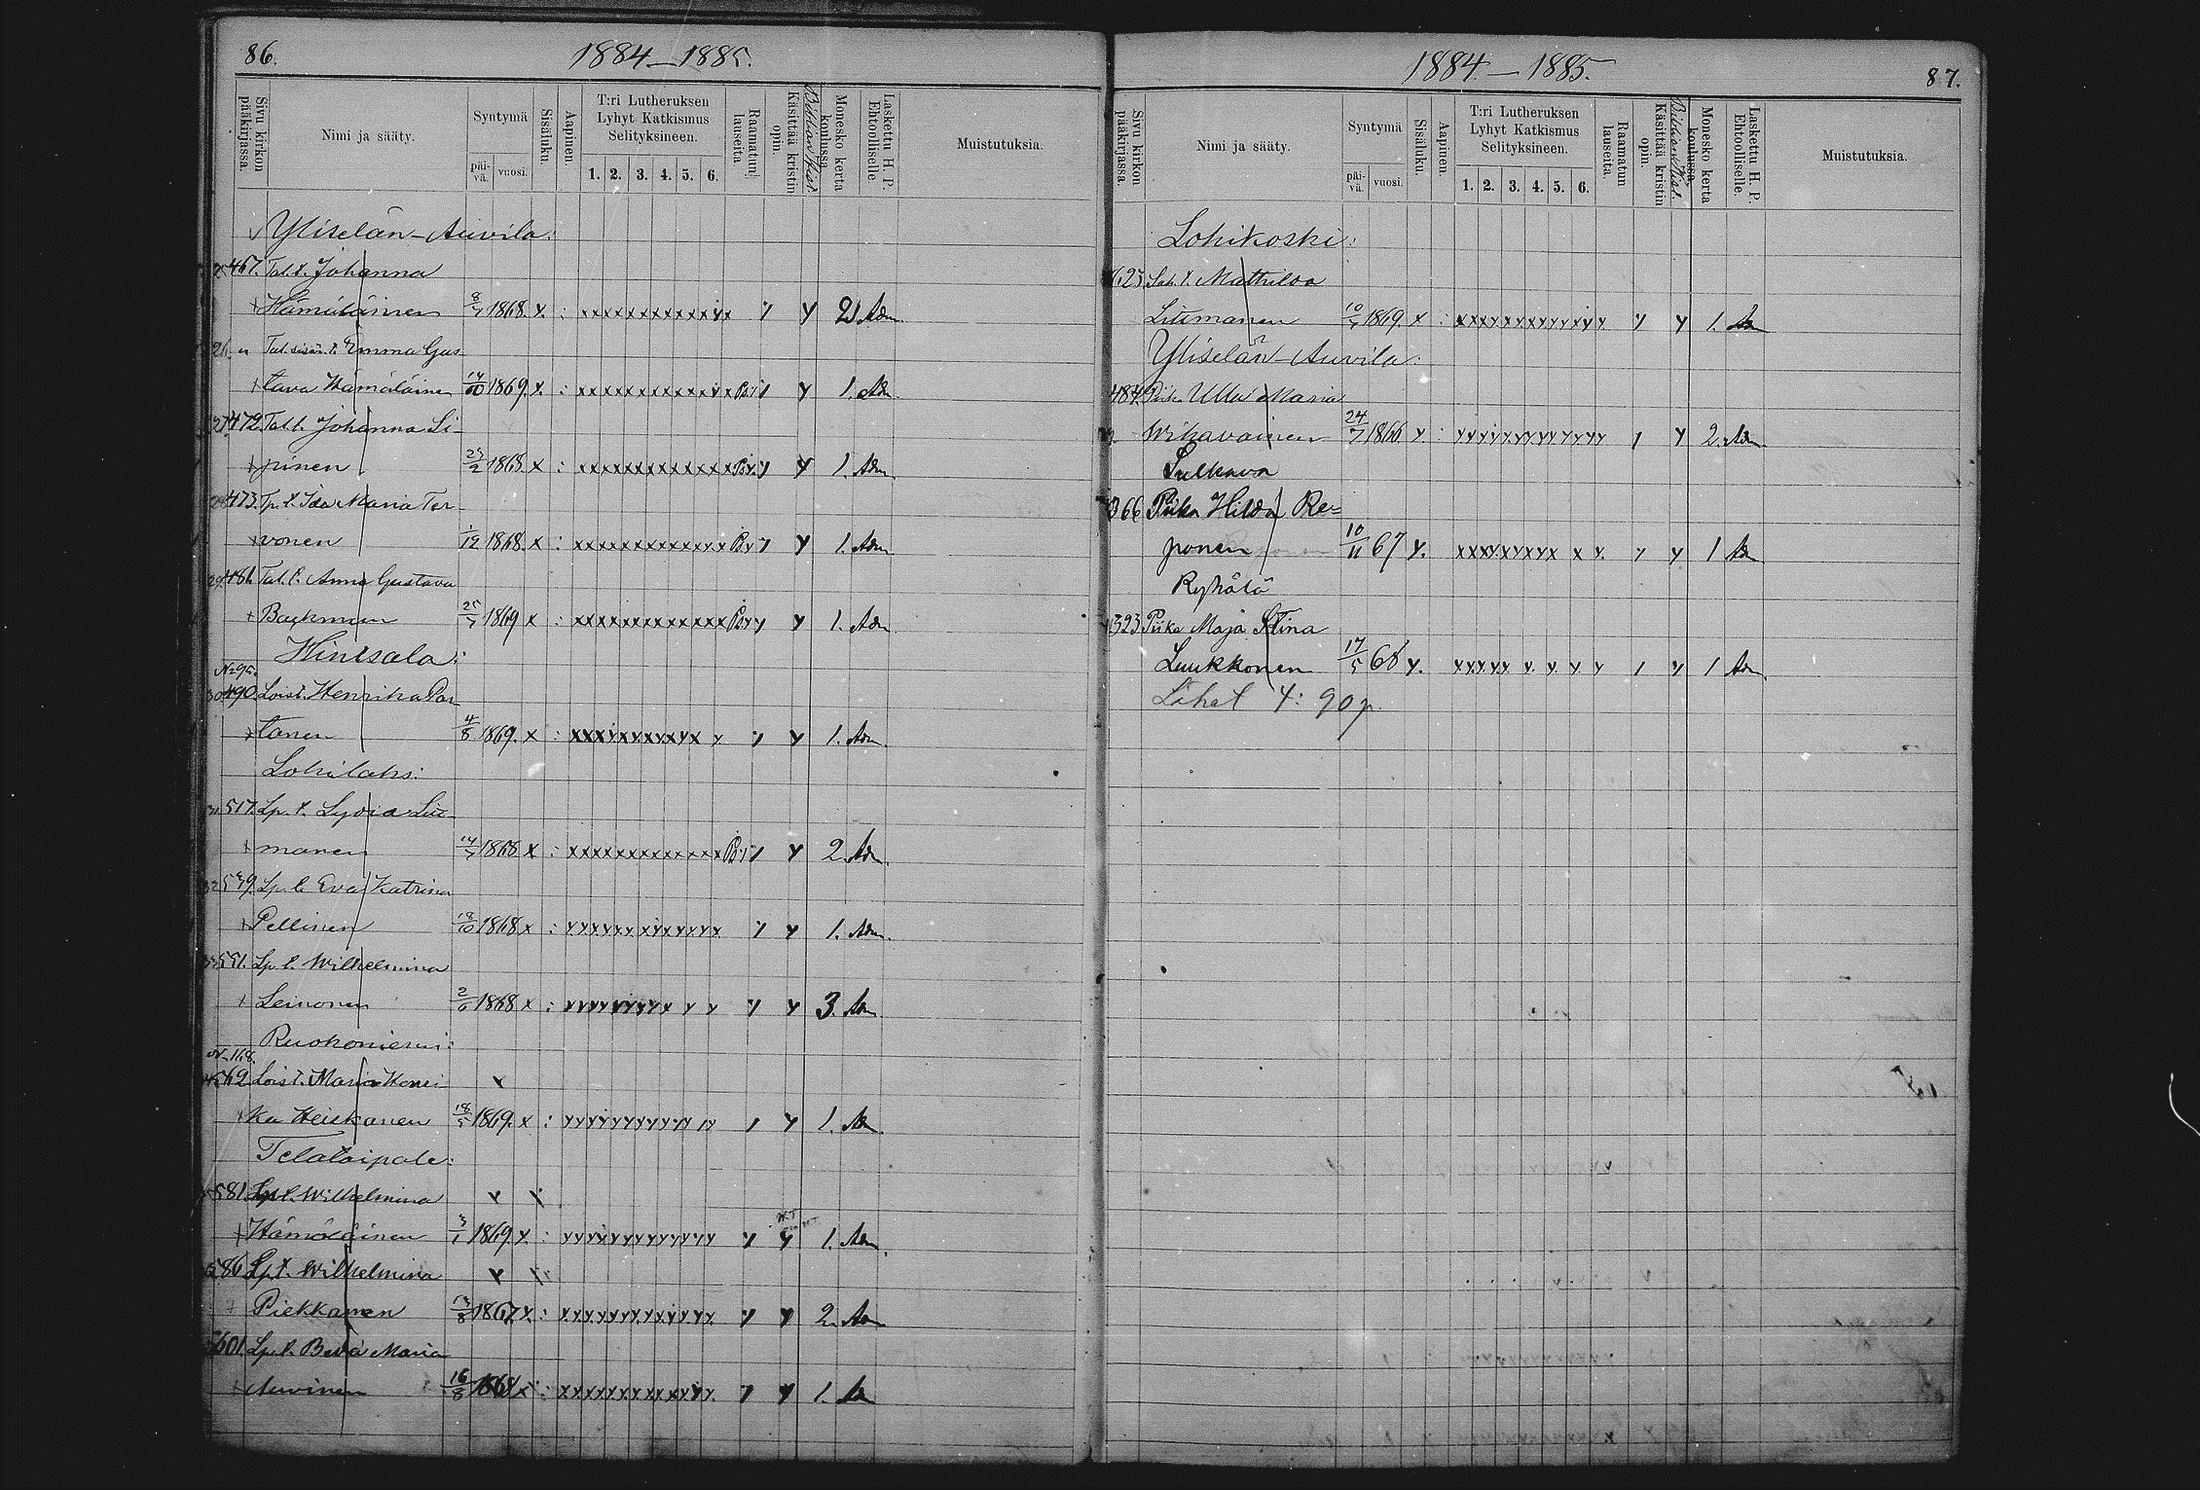 86.
1884–1885.
Sivu kirkon pääkirjassa.
Nimi ja sääty.
Syntymä
päivä.
vuosi.
Sisäluku.
Aapinen.
T:ri Lutheruksen
Lyhyt Katkismus
Selityksineen.
1. 2. 3. 4. 5. 6.
Raamatun lauseita.
Käsittää kristin opin.
Biblian Hist.
Monesko kerta koulussa.
Laskettu H. P. Ehtoolliselle.
Muistutuksia.
Yliselän-Auvila:
467. Tal. t. Johanna
Hämäläinen 8/7 1868. x. : xxxxxxxxxxxxx y y 2 Adm.
26. " Tal. sisar. t. Emma Gus-
tava Hämäläinen 14/10 1869. x. : xxxxxxxxxxxxx y y 1. Adm.
27. 472. Tal. t. Johanna Li-
pinen 23/2 1868. x : xxxxxxxxxxxxx y y 1. Adm.
473. Tp. t. Ida Maria Ter-
vonen 1/12 1868. x : xxxxxxxxxxxxx y y 1. Adm.
29. 481. Tal. t. Anna Gustava
Backman 25/7 1869 x : xxxxxxxxxxxxx y y 1. Adm.
Hintsala:
No 95.
30. 490. Lois t. Henrika Par-
tanen 4/8 1869. x : xxxxxxxxxxx x y y 1. Adm.
Lohilahs:
517. Lp. t. Lydia Lii-
manen 14/7 1868 x : xxxxxxxxxxxxx y y 2. Adm.
32 539. Lp. t. Eva Katrina
Pellinen 18/10 1868 x : yyxxxxyxyxxyyx y y 1. Adm.
551. Lp t. Wilhelmina
Leinonen 2/6 1868 x : xyyyyyyyyx y y y y 3. Adm
Ruokoniemi:
No 168.
569 Lois t. Maria Henri- x
ka Heiskanen 18/5 1869. x : yyyyyyyyyyy yy y y 1. Adm
Telataipale:
581. Lp t. Wilhelmina x x
Hämäläinen 3/1 1869 x. : yyyyyyyyyyyyy y y 1. Adm.
586 Lp t. Wilhelmina x
Piekkanen 13/8 1867 x. : yyyyyyyyyyyyy y y 2. Adm
601. Lp. t. Beda Maria
Auvinen 16/8 1868 x : xyyyyyyxxxxyyy y y 1. Adm
1884–1885.
87.
Sivu kirkon pääkirjassa.
Nimi ja sääty.
Syntymä
päivä.
vuosi.
Sisäluku.
Aapinen.
T:ri Lutheruksen
Lyhyt Katkismus
Selityksineen.
1. 2. 3. 4. 5. 6.
Raamatun lauseita.
Käsittää kristin opin.
Biblian Hist.
Monesko kerta koulussa.
Laskettu H. P. Ehtoolliselle.
Muistutuksia.
Lohikoski:
623 t. Mathilda
Liimanen 1869. x : xxxyxyxyyyxyy y y 1. Adm
Yliselän-Auvila:
484. Piika Ulla Maria
Wihavainen 24/7 1866 y : yyyyyyyyyyyyy y y 2. Adm.
Sulkava
366 Piika Hilda Re=
ponen 10/11 67 y. xxxyxyxyx x y. y y 1 Adm
Ryhälä
323 Piika Maja Stina
Luukkonen 17/5 68 y. xyxyx y. y. y y y y 1 Adm.
Lähet 4: 90 p.